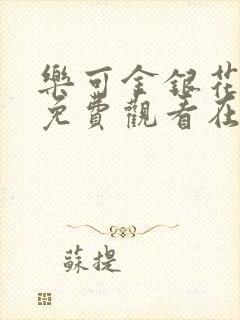 樂可金銀花
免費觀看在
蘇提